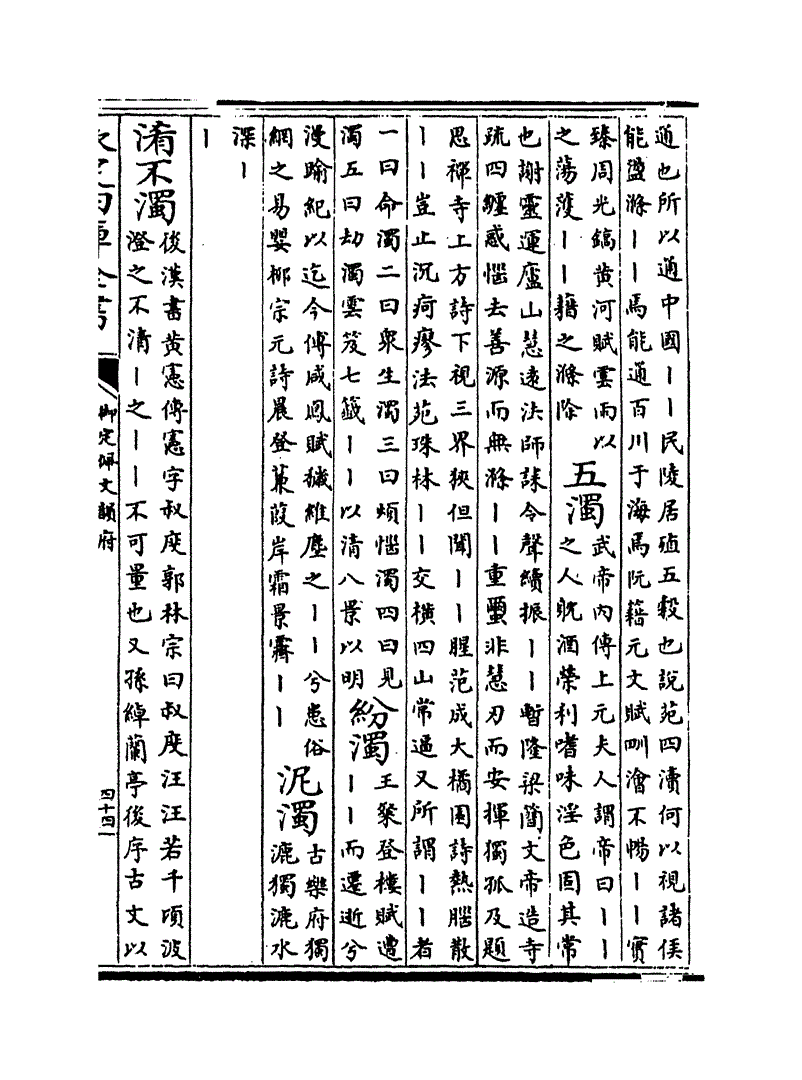 通也所以通中國丨丨民陵居殖五穀也說苑四瀆何以視諸侯
能盪滌丨丨焉能通百川于海焉阮籍元文賦甽澮不暢丨丨實
臻周光鎬黄河賦雲雨以
之蕩薉丨丨藉之滌除
五濁
武帝內傳上元夫人謂帝曰丨丨
之人躭酒榮利嗜味淫色固其常
也謝靈運廬山慧遠法師誄令聲續振丨丨暫隆梁簡文帝造寺
疏四纒惑惱去善源而無滌丨丨重蠒非慧刃而安揮獨孤及題
思禪寺上方詩下視三界狹但聞丨丨腥范成大橘園詩熱腦散
丨丨豈止沉疴瘳法苑珠林丨丨交橫四山常逼又所謂丨丨者
一曰命濁二曰衆生濁三曰煩惱濁四曰見
濁五曰劫濁雲笈七籤丨丨以清八景以明
紛濁
王粲登樓賦遭
丨丨而遷逝兮
漫踰紀以迄今傅咸鳳賦穢維塵之丨丨兮患俗
網之易嬰柳宗元詩晨登蒹葭岸霜景霽丨丨
泥濁
古樂府獨
漉獨漉水
深丨
丨
淆不濁
後漢書黄憲傳憲字叔度郭林宗曰叔度汪汪若千頃波
澄之不清丨之丨丨不可量也又孫綽蘭亭後序古文以
御定佩文韻府
四十四